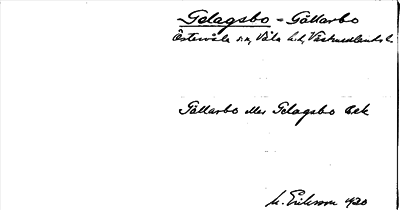 Gelagsbo - Gällarbo
Östervåla sn, Våla hd, Västmanlands l.
Gällarbo eller Gelagsbo Bek
M. Eriksson 1920